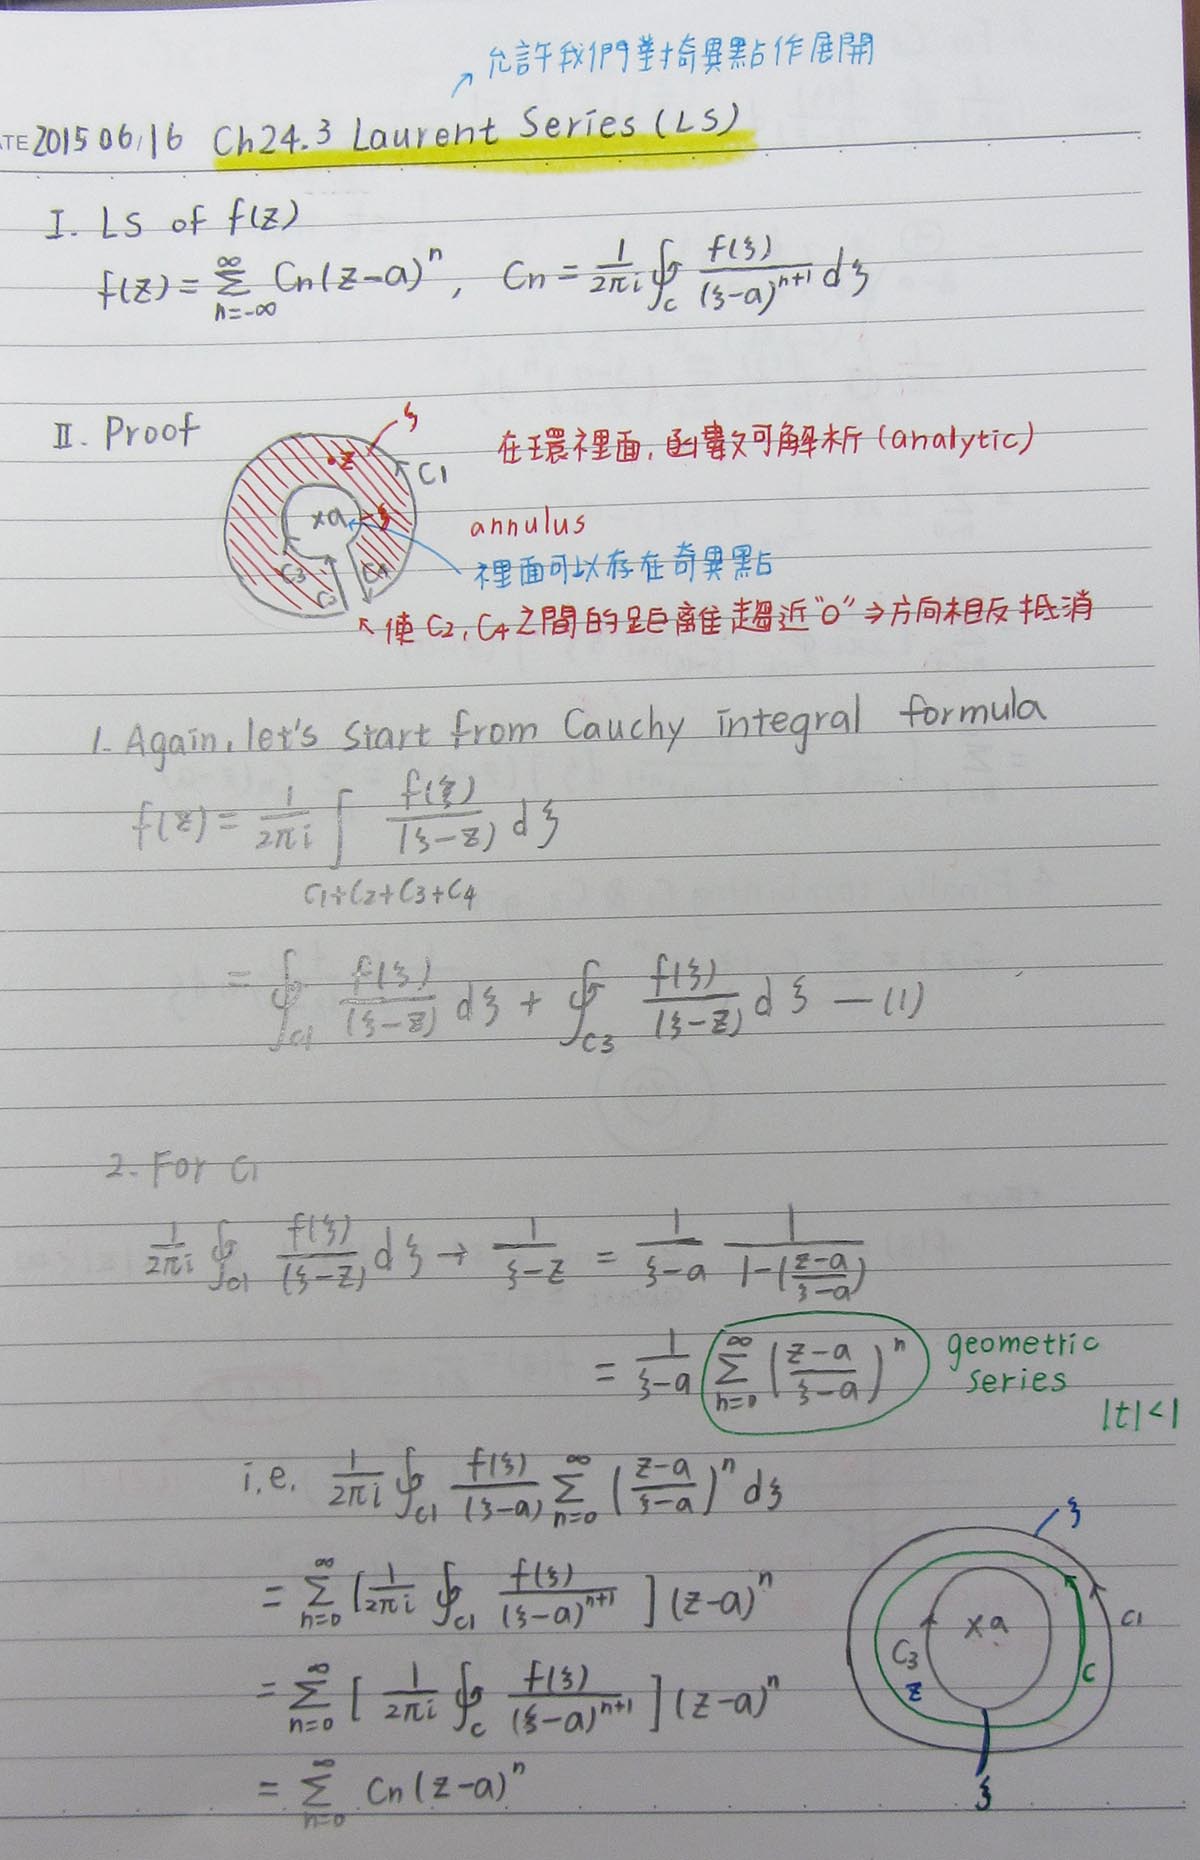 允許我們對奇異點作展開
ATE 2015 06/16 Ch24.3 Laurent Series (LS)
I. LS of f(z)
f(z) = ∑_{n=-∞}^{∞} Cn(z-a)^n, Cn = 1/(2πi) ∮_C f(ξ)/(ξ-a)^{n+1} dξ
II. Proof
ξ
z
C1
在環裡面,函數可解析(analytic)
×a
ξ
annulus
C3
C2
C4
裡面可以存在奇異點
使C2,C4之間的距離趨近"0"⇒方向相反抵消
1. Again, let's start from Cauchy integral formula
f(z) = 1/(2πi) ∫_{C1+C2+C3+C4} f(ξ)/(ξ-z) dξ
= ∮_{C1} f(ξ)/(ξ-z) dξ + ∮_{C3} f(ξ)/(ξ-z) dξ —(1)
2. For C1
1/(2πi) ∮_{C1} f(ξ)/(ξ-z) dξ → 1/(ξ-z) = 1/(ξ-a) 1/(1-((z-a)/(ξ-a)))
= 1/(ξ-a) ∑_{n=0}^{∞} ((z-a)/(ξ-a))^n
geometric
series
|t|<1
i.e. 1/(2πi) ∮_{C1} f(ξ)/(ξ-a) ∑_{n=0}^{∞} ((z-a)/(ξ-a))^n dξ
= ∑_{n=0}^{∞} [1/(2πi) ∮_{C1} f(ξ)/(ξ-a)^{n+1} ] (z-a)^n
= ∑_{n=0}^{∞} [1/(2πi) ∮_C f(ξ)/(ξ-a)^{n+1} ] (z-a)^n
= ∑_{n=0}^{∞} Cn(z-a)^n
ξ
×a
C1
C3
C
z
ξ